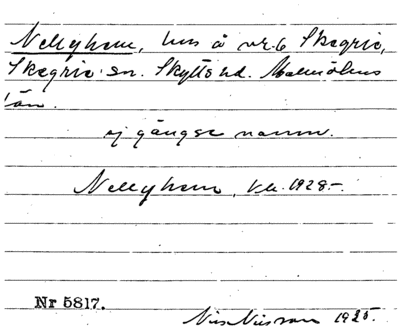 Nellyhem, hus å nr. 6 Skegrie,
Skegrie sn. Skytts hd. Malmöhus
län.
ej gängse namn.
Nellyhem, 1928.
Nr 5817.
Nils Nilsson 1925.